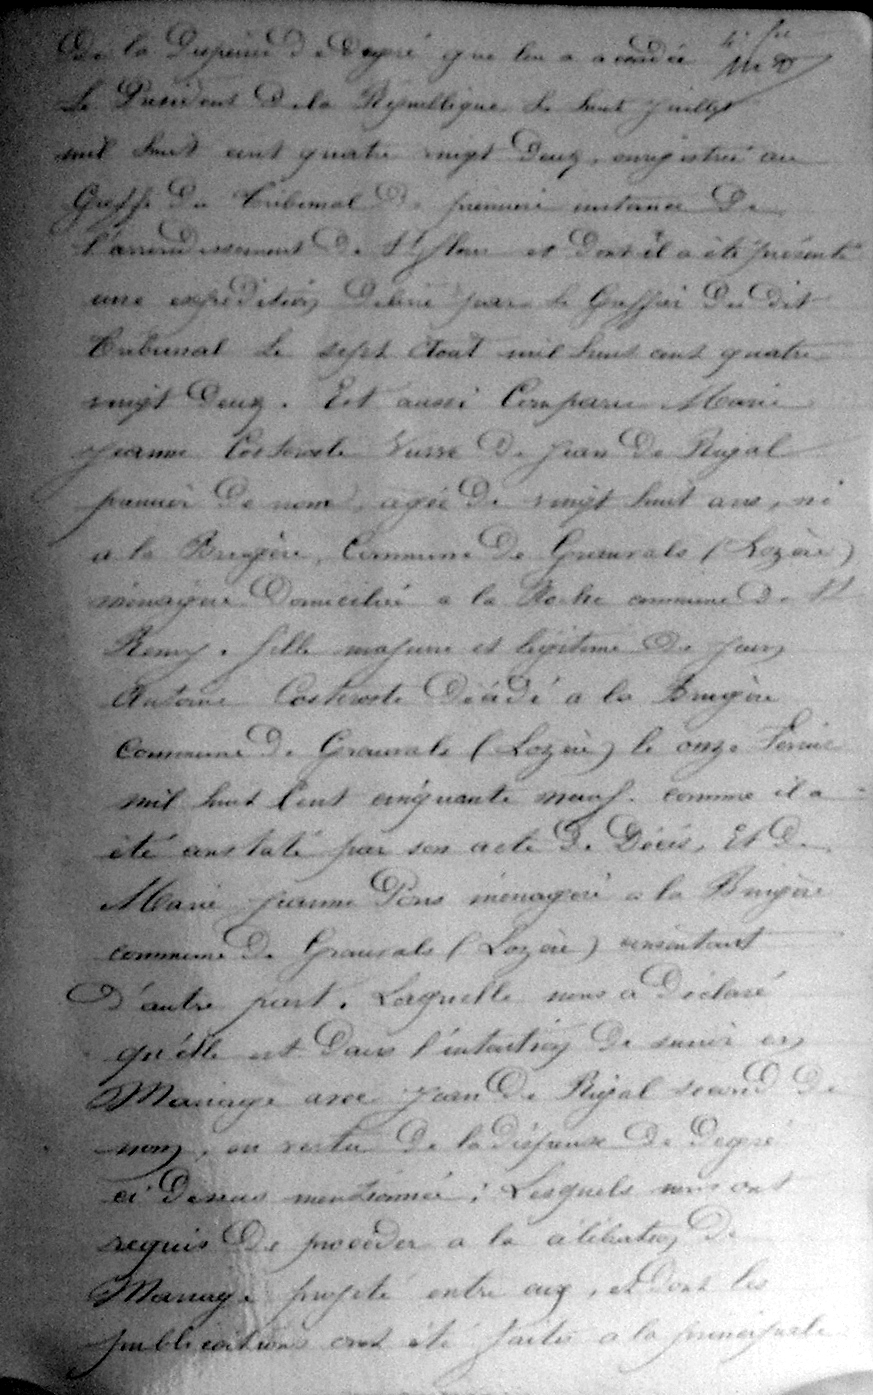 De la Dispense de Degré que leur a accordée
Le Président de la République le huit juillet
mil huit cent quatre vingt Deux, enregistrée au
Greffe du Tribunal de première instance De
l'arrondissement de St flour et Dont il a été présenté
une expédition Délivré par le Greffier du dit
Tribunal le sept Aout mil huit cent quatre
vingt Deux. Est aussi Comparue Marie
Jeanne Costeroste Veuve de Jean De Rigal
premier De nom, agée De vingt huit ans, né
a la Brugère, Commune De Grauvals (Lozère)
ménagère Domiciliée a la Roche commune De St
Remy. fille majeure et légitime De Jean
Antoine Costeroste Décédé a la Brugère
Commune De Grauvals (Lozère) le onze Février
mil huit Cent cinquante neuf. comme il a
été constaté par son acte De Décès, Et De
Marie Jeanne Pons ménagère a la Brugère
commune De Grauvals (Lozère) consentant
D'autre part. Laquelle nous a Déclaré
qu'elle est Dans l'intention De s'unir en
Mariage avec Jean De Rigal second De
nom, en vertu De la dispense De Degré
ci Dessus mentionnée; Lesquels nous ont
requis De procéder a la célébration De
Mariage projeté entre eux, et dont les
publications ont été faites a la principale